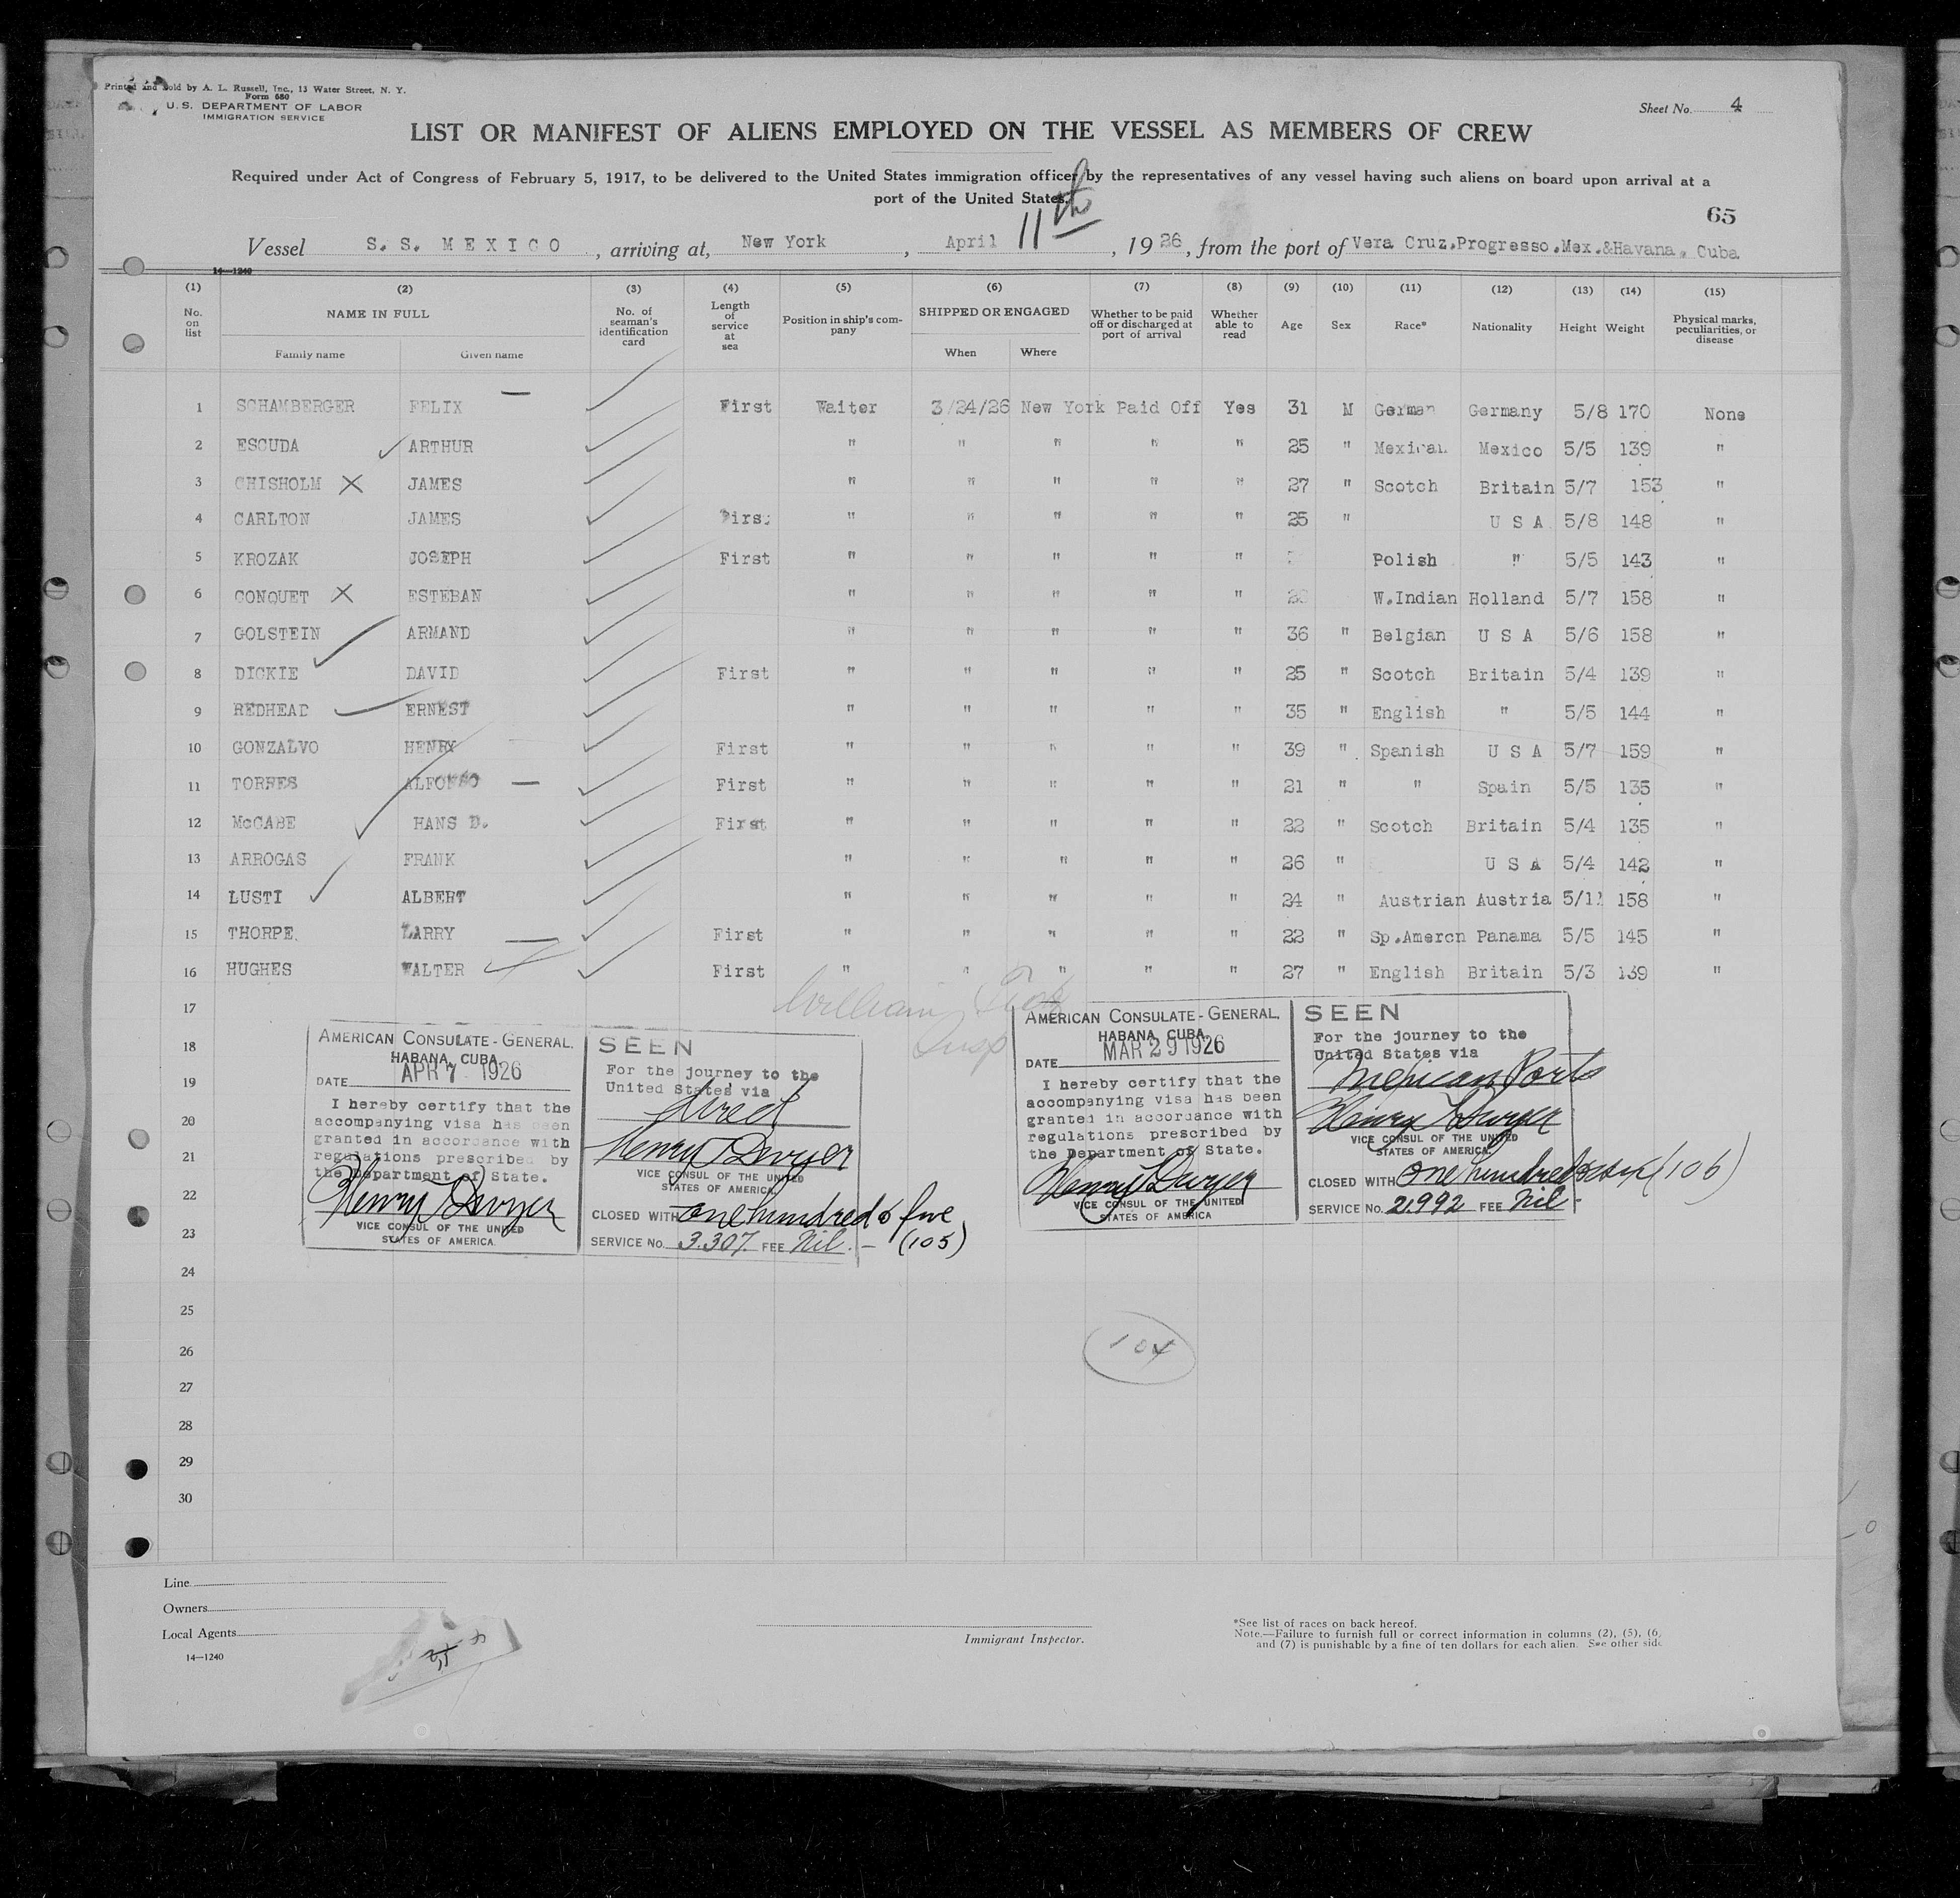 Printed and Sold by A. L. Russell, Inc., 13 Water Street, N. Y.
Form 680
U. S. DEPARTMENT OF LABOR
IMMIGRATION SERVICE
Sheet No. 4
LIST OR MANIFEST OF ALIENS EMPLOYED ON THE VESSEL AS MEMBERS OF CREW
Required under Act of Congress of February 5, 1917, to be delivered to the United States immigration officer by the representatives of any vessel having such aliens on board upon arrival at a
port of the United States.
65
Vessel S. S. MEXICO, arriving at, New York, April 11th, 1926, from the port of Vera Cruz.Progresso.Mex.&Havana. Cuba
14—1240
(1) (2) (3) (4) (5) (6) (7) (8) (9) (10) (11) (12) (13) (14) (15)
No. on list NAME IN FULL No. of seaman's identification card Length of service at sea Position in ship's company SHIPPED OR ENGAGED Whether to be paid off or discharged at port of arrival Whether able to read Age Sex Race* Nationality Height Weight Physical marks, peculiarities, or disease
Family name Given name When Where
1 SCHAMBERGER FELIX First Waiter 3/24/26 New York Paid Off Yes 31 M German Germany 5/8 170 None
2 ESCUDA ARTHUR " " " " " 25 " Mexican Mexico 5/5 139 "
3 CHISHOLM X JAMES " " " " " 27 " Scotch Britain 5/7 153 "
4 CARLTON JAMES First " " " " " 25 " U S A 5/8 148 "
5 KROZAK JOSEPH First " " " " " Polish " 5/5 143 "
6 CONQUET X ESTEBAN " " " " " W.Indian Holland 5/7 158 "
7 GOLSTEIN ARMAND " " " " " 36 " Belgian U S A 5/6 158 "
8 DICKIE DAVID First " " " " " 25 " Scotch Britain 5/4 139 "
9 REDHEAD ERNEST " " " " " 35 " English " 5/5 144 "
10 GONZALVO HENRY First " " " " " 39 " Spanish U S A 5/7 159 "
11 TORRES ALFONSO First " " " " " 21 " " Spain 5/5 135 "
12 McCABE HANS D. First " " " " " 22 " Scotch Britain 5/4 135 "
13 ARROGAS FRANK " " " " " 26 " U S A 5/4 142 "
14 LUSTI ALBERT " " " " " 24 " Austrian Austria 5/11 158 "
15 THORPE. LARRY First " " " " " 22 " Sp.Amercn Panama 5/5 145 "
16 HUGHES WALTER First " " " " " 27 " English Britain 5/3 139 "
17
18
19
20
21
22
23
24
25
26
27
28
29
30
William
Insp
AMERICAN CONSULATE-GENERAL,
HABANA, CUBA.
DATE APR 7 1926
I hereby certify that the
accompanying visa has been
granted in accordance with
regulations prescribed by
the Department of State.
Henry T Dwyer
VICE CONSUL OF THE UNITED
STATES OF AMERICA.
SEEN
For the journey to the
United States via
direct
Henry T Dwyer
VICE CONSUL OF THE UNITED
STATES OF AMERICA.
CLOSED WITH one hundred & five
SERVICE No. 3.307. FEE Nil.— (105)
AMERICAN CONSULATE-GENERAL,
HABANA, CUBA.
DATE MAR 29 1926
I hereby certify that the
accompanying visa has been
granted in accordance with
regulations prescribed by
the Department of State.
Henry T Dwyer
VICE CONSUL OF THE UNITED
STATES OF AMERICA
SEEN
For the journey to the
United States via
Mexican Ports
Henry T Dwyer
VICE CONSUL OF THE UNITED
STATES OF AMERICA.
CLOSED WITH One hundred & six (106)
SERVICE No. 2.992 FEE Nil-
104
Line
Owners
Local Agents
14—1240
Immigrant Inspector.
*See list of races on back hereof.
Note.—Failure to furnish full or correct information in columns (2), (5), (6,
and (7) is punishable by a fine of ten dollars for each alien. See other side